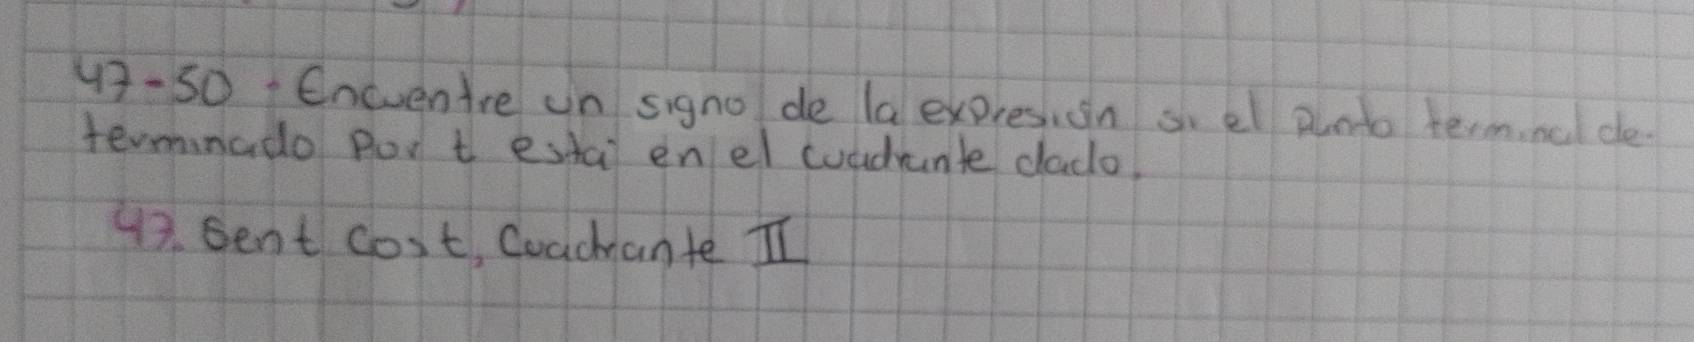 47-50. Encuentre un signo de la expresión si el punto terminal de-
terminado por t está en el cuadrante dado.
47. Sent Cost, Cuadrante II